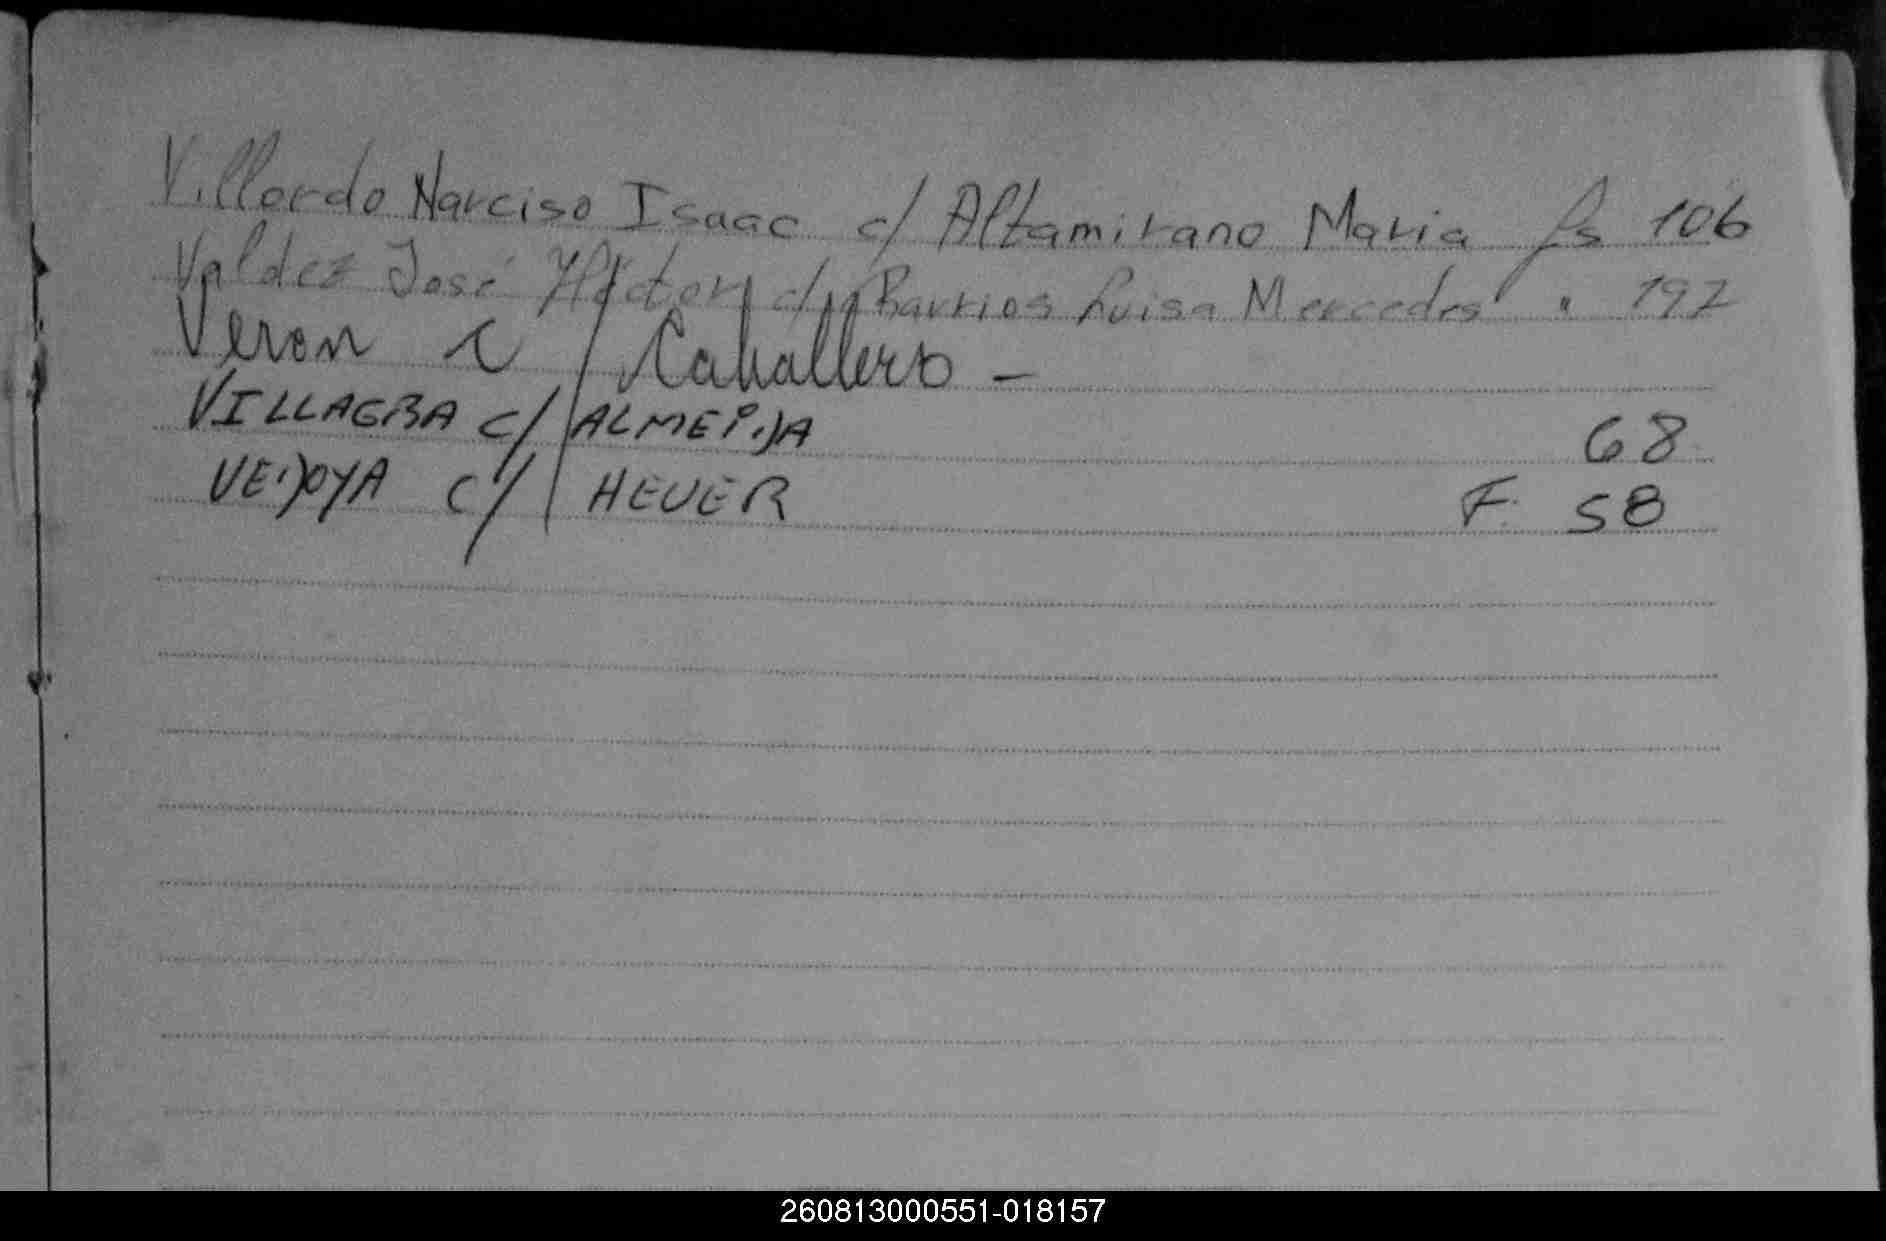 Villordo Narciso Isaac c/ Altamirano Maria fs 106
Valdez José Héctor c/ Barrios Luisa Mercedes " 192
Veron c/ Caballero -
VILLAGRA c/ ALMEIDA 68
VEDOYA c/ HEUER F. 58
260813000551-018157